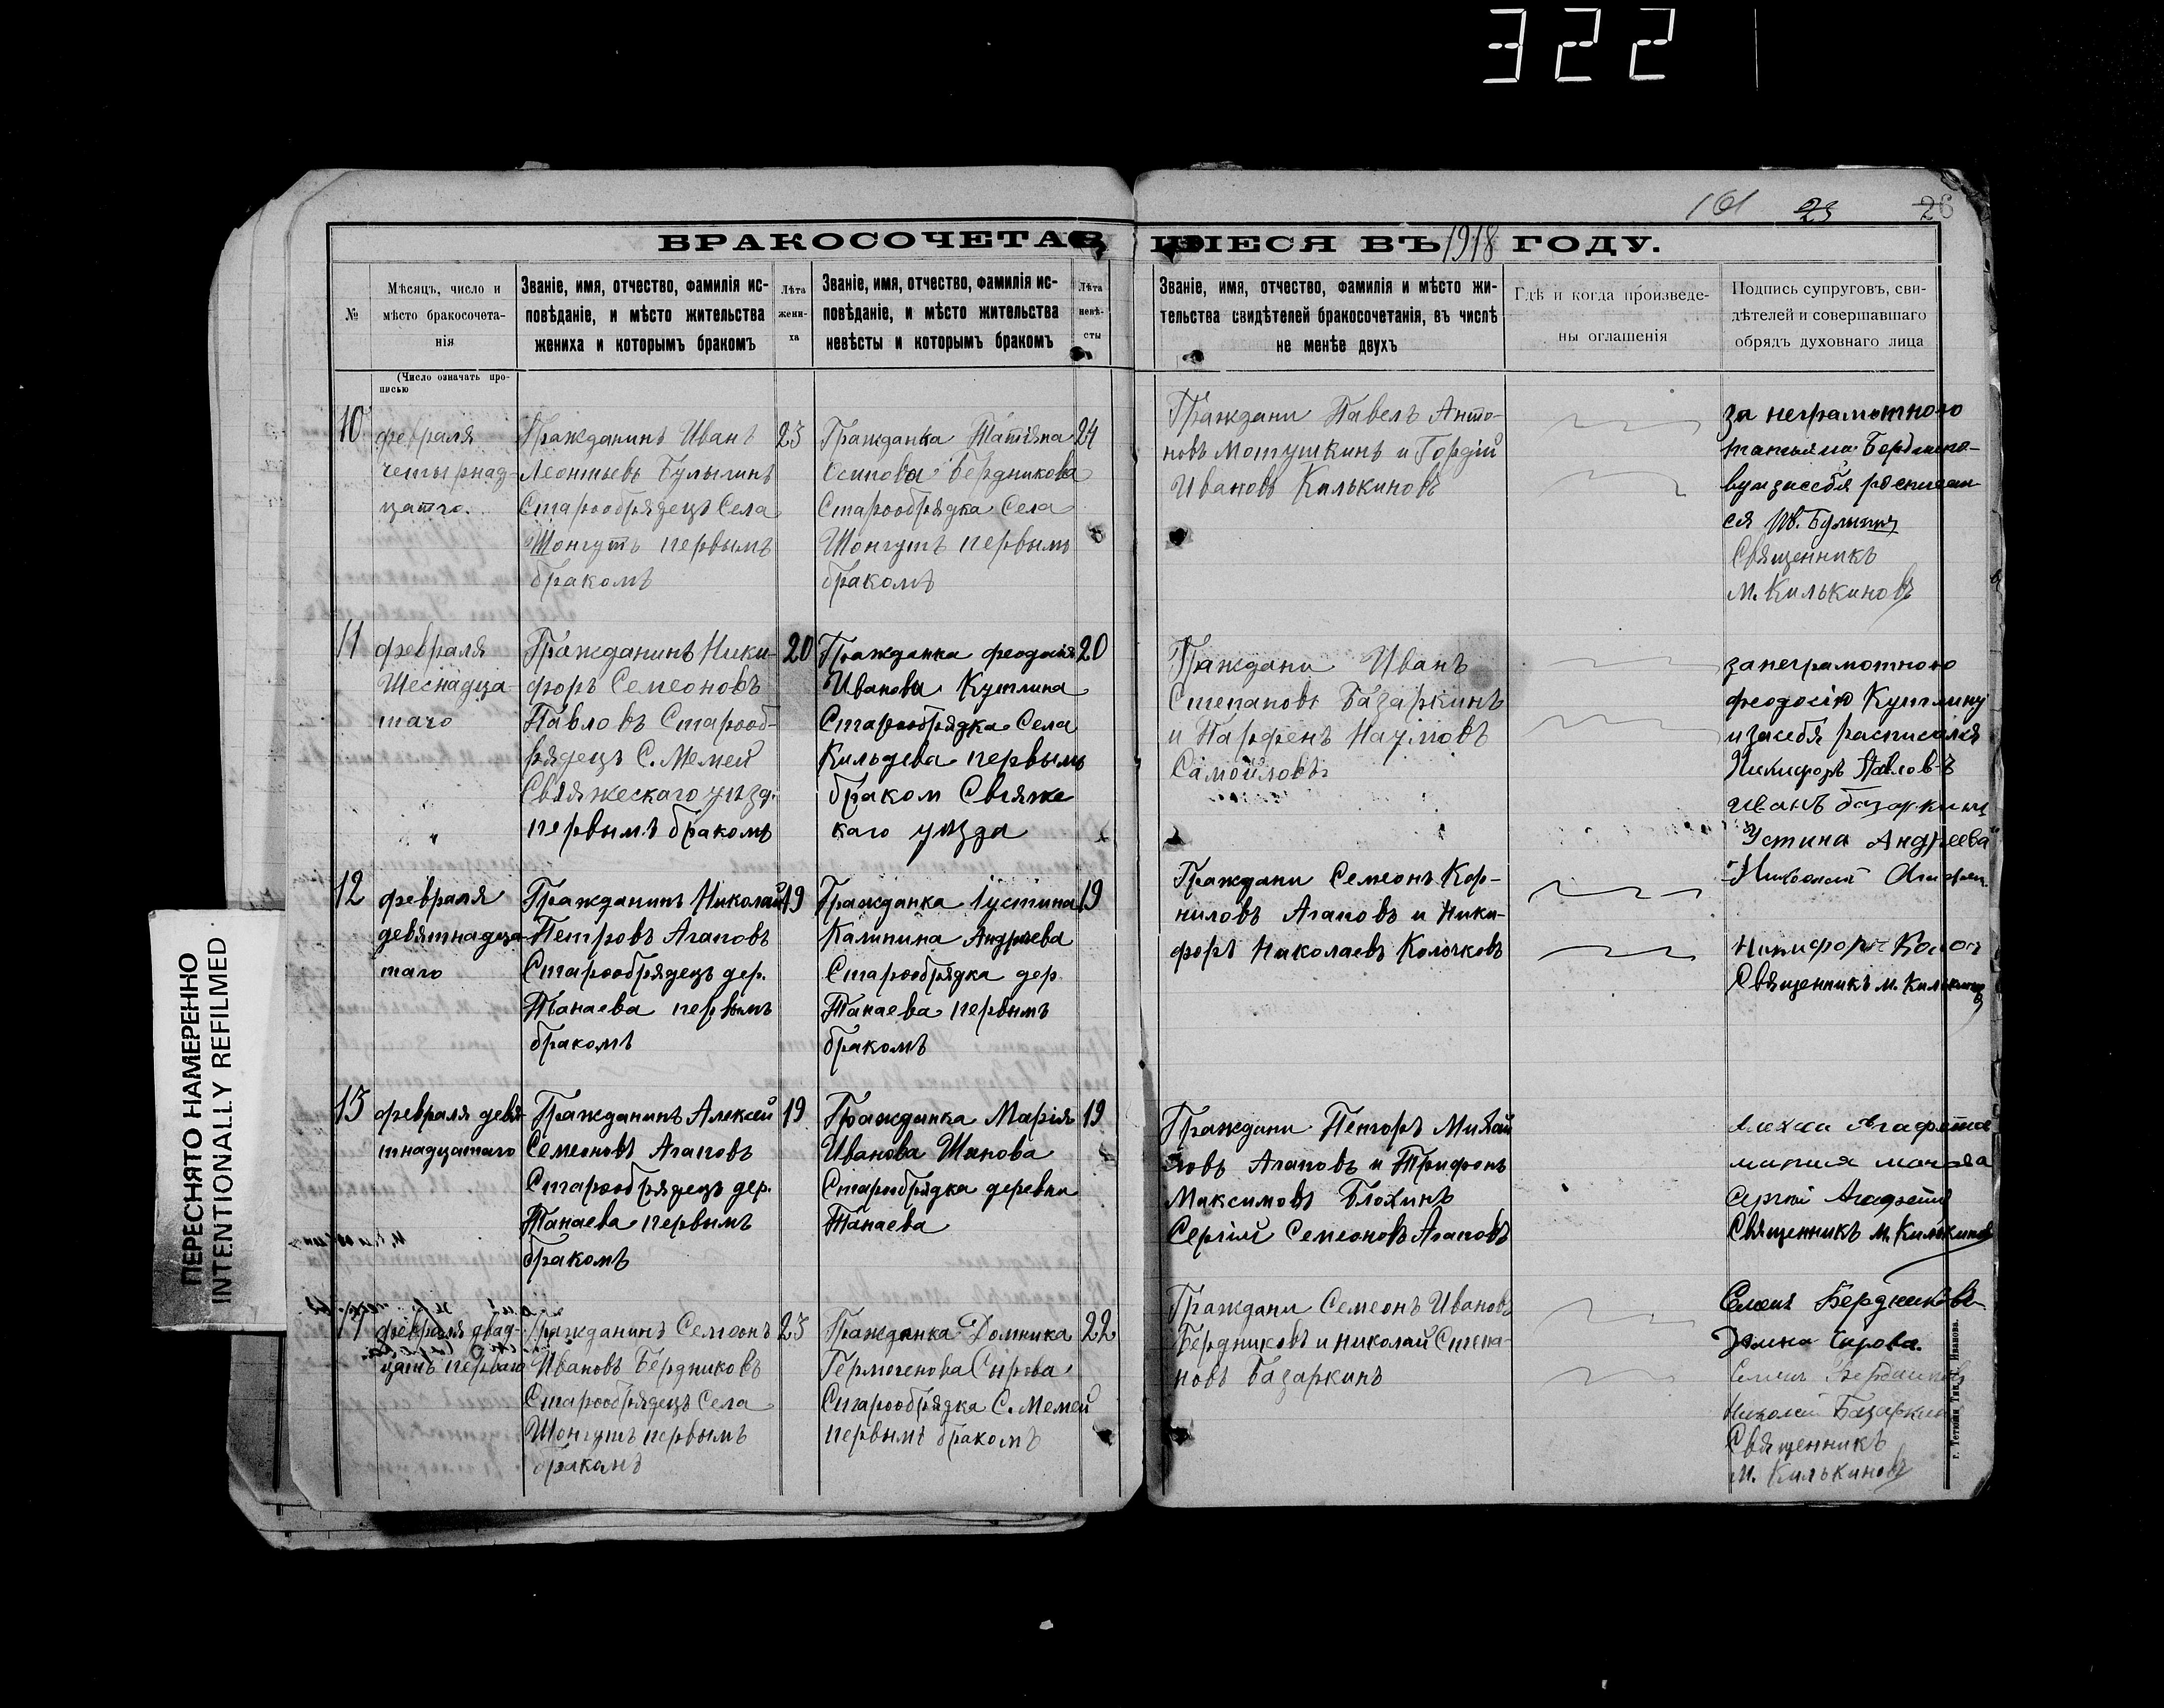 322
161 25 26
БРАКОСОЧЕТАВШІЕСЯ ВЪ 1918 ГОДУ.
№
Мѣсяцъ, число и
мѣсто бракосочета-
нія
Званіе, имя, отчество, фамилія ис-
повѣданіе, и мѣсто жительства
жениха и которымъ бракомъ
Лѣта
жени-
ха
Званіе, имя, отчество, фамилія ис-
повѣданіе, и мѣсто жительства
невѣсты и которымъ бракомъ
Лѣта
невѣ-
сты
Званіе, имя, отчество, фамилія и мѣсто жи-
тельства свидѣтелей бракосочетанія, въ числѣ
не менѣе двухъ
Гдѣ и когда произведе-
ны оглашенія
Подпись супруговъ, сви-
дѣтелей и совершавшаго
обрядъ духовнаго лица
(Число означать про-
писью
10
февраля
четырнад-
цатго.
Гражданинъ Иванъ
Леонтьевъ Булыгинъ
Старообрядецъ Села
Шонгутъ первымъ
бракомъ
23
Гражданка Татіяна
Осипова Бердникова
Старообрядка Села
Шонгутъ первымъ
бракомъ
24
Граждани Павелъ Анто-
новъ Мотушкинъ и Гордій
Ивановъ Кильkиновъ
за неграмотного
татьяна Бердника-
ву и засебя росписал
ся Ив. Булыгин
Священникъ
М. Килькиновъ
11
февраля
Шеснадца-
таго
Гражданинъ Ники-
форъ Семеоновъ
Павловъ Старооб-
рядецъ С. Мемей
Свіяжескаго уѣзд.
первымъ бракомъ
20
Гражданка феодосія
Иванова Кутлина
Старообрядка Села
Кильдева первымъ
браком Свіяже
каго уѣзда
20
Граждани Иванъ
Степановъ Базаркинъ
и Парфенъ Наумовъ
Самойловъ
за неграмотного
феодосію Кутлину
и засебя расписался
Никифоръ Павловъ
Иванъ базаркинъ
12
февраля
девятнадца-
таго
Гражданинъ Николай
Петровъ Агаповъ
Старообрядецъ дер.
Танаева первымъ
бракомъ
19
Гражданка Іустина
Калинина Андрѣева
Старообрядка дер.
Танаева первымъ
бракомъ
19
Граждани Семеонъ Кор-
ниловъ Агаповъ и Ники-
форъ Николаевъ Колочковъ
Устина Андреева
Николай
Никифоръ
Священникъ М. Килькиновъ
13
февраля девя-
тнадцатаго
Гражданинъ Алексей
Семеоновъ Агаповъ
Старообрядецъ дер.
Танаева первымъ
бракомъ
19
Гражданка Марія
Иванова Шанова
Старообрядка деревни
Танаева
19
Граждани Михай
ловъ Агаповъ и Трифонъ
Максимовъ Блохинъ
Сергій Семеоновъ Агаповъ
Сергей
Священникъ М. Килькиновъ
14
февраля двад-
цать перваго
Гражданинъ Семеонъ
Ивановъ Бердниковъ
Старообрядецъ Села
Шонгутъ первымъ
бракамъ
23
Гражданка Домника
Гермогенова Сырова
Старообрядка С. Мемей
первымъ бракомъ
22
Граждани Семеонъ Ивановъ
Бердниковъ и Николай Степа-
новъ Базаркинъ
Семенъ Бердниковъ
Сырова.
Семенъ Бердниковъ
Николай Базаркинъ
Священникъ
М. Килькиновъ
г. Тетюши, Тип. Иванова.
ПЕРЕСНЯТО НАМЕРЕННО
INTENTIONALLY REFILMED